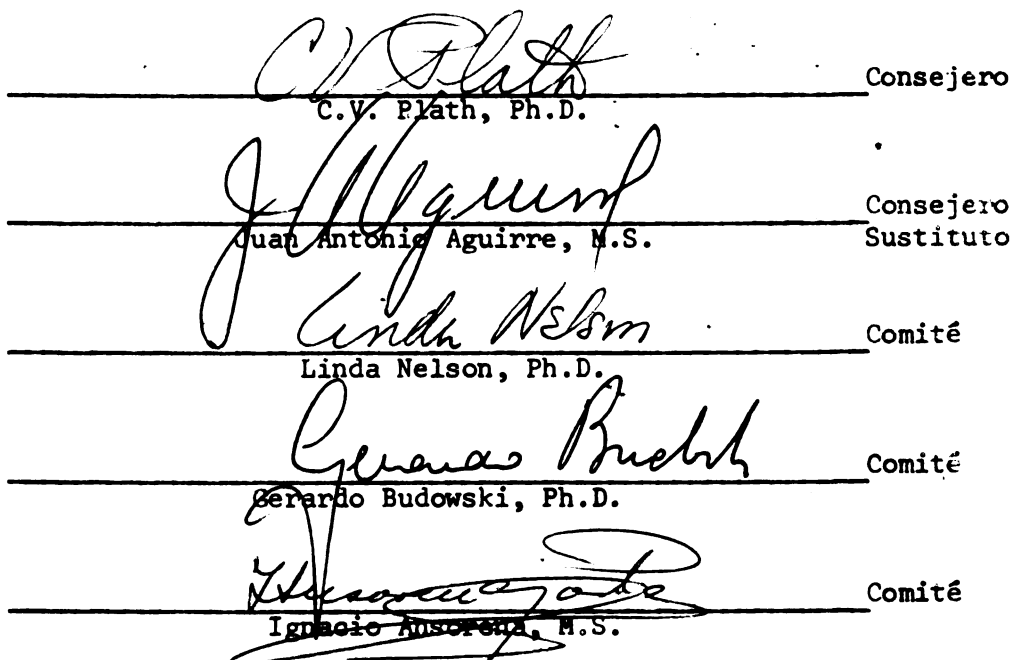 C.V. Plath Consejero
C.V. Plath, Ph.D.
J A Aguirre Consejero
Juan Antonio Aguirre, M.S. Sustituto
Linda Nelson Comité
Linda Nelson, Ph.D.
Gerardo Budowski Comité
Gerardo Budowski, Ph.D.
Comité
Ignacio Ansorena, M.S.